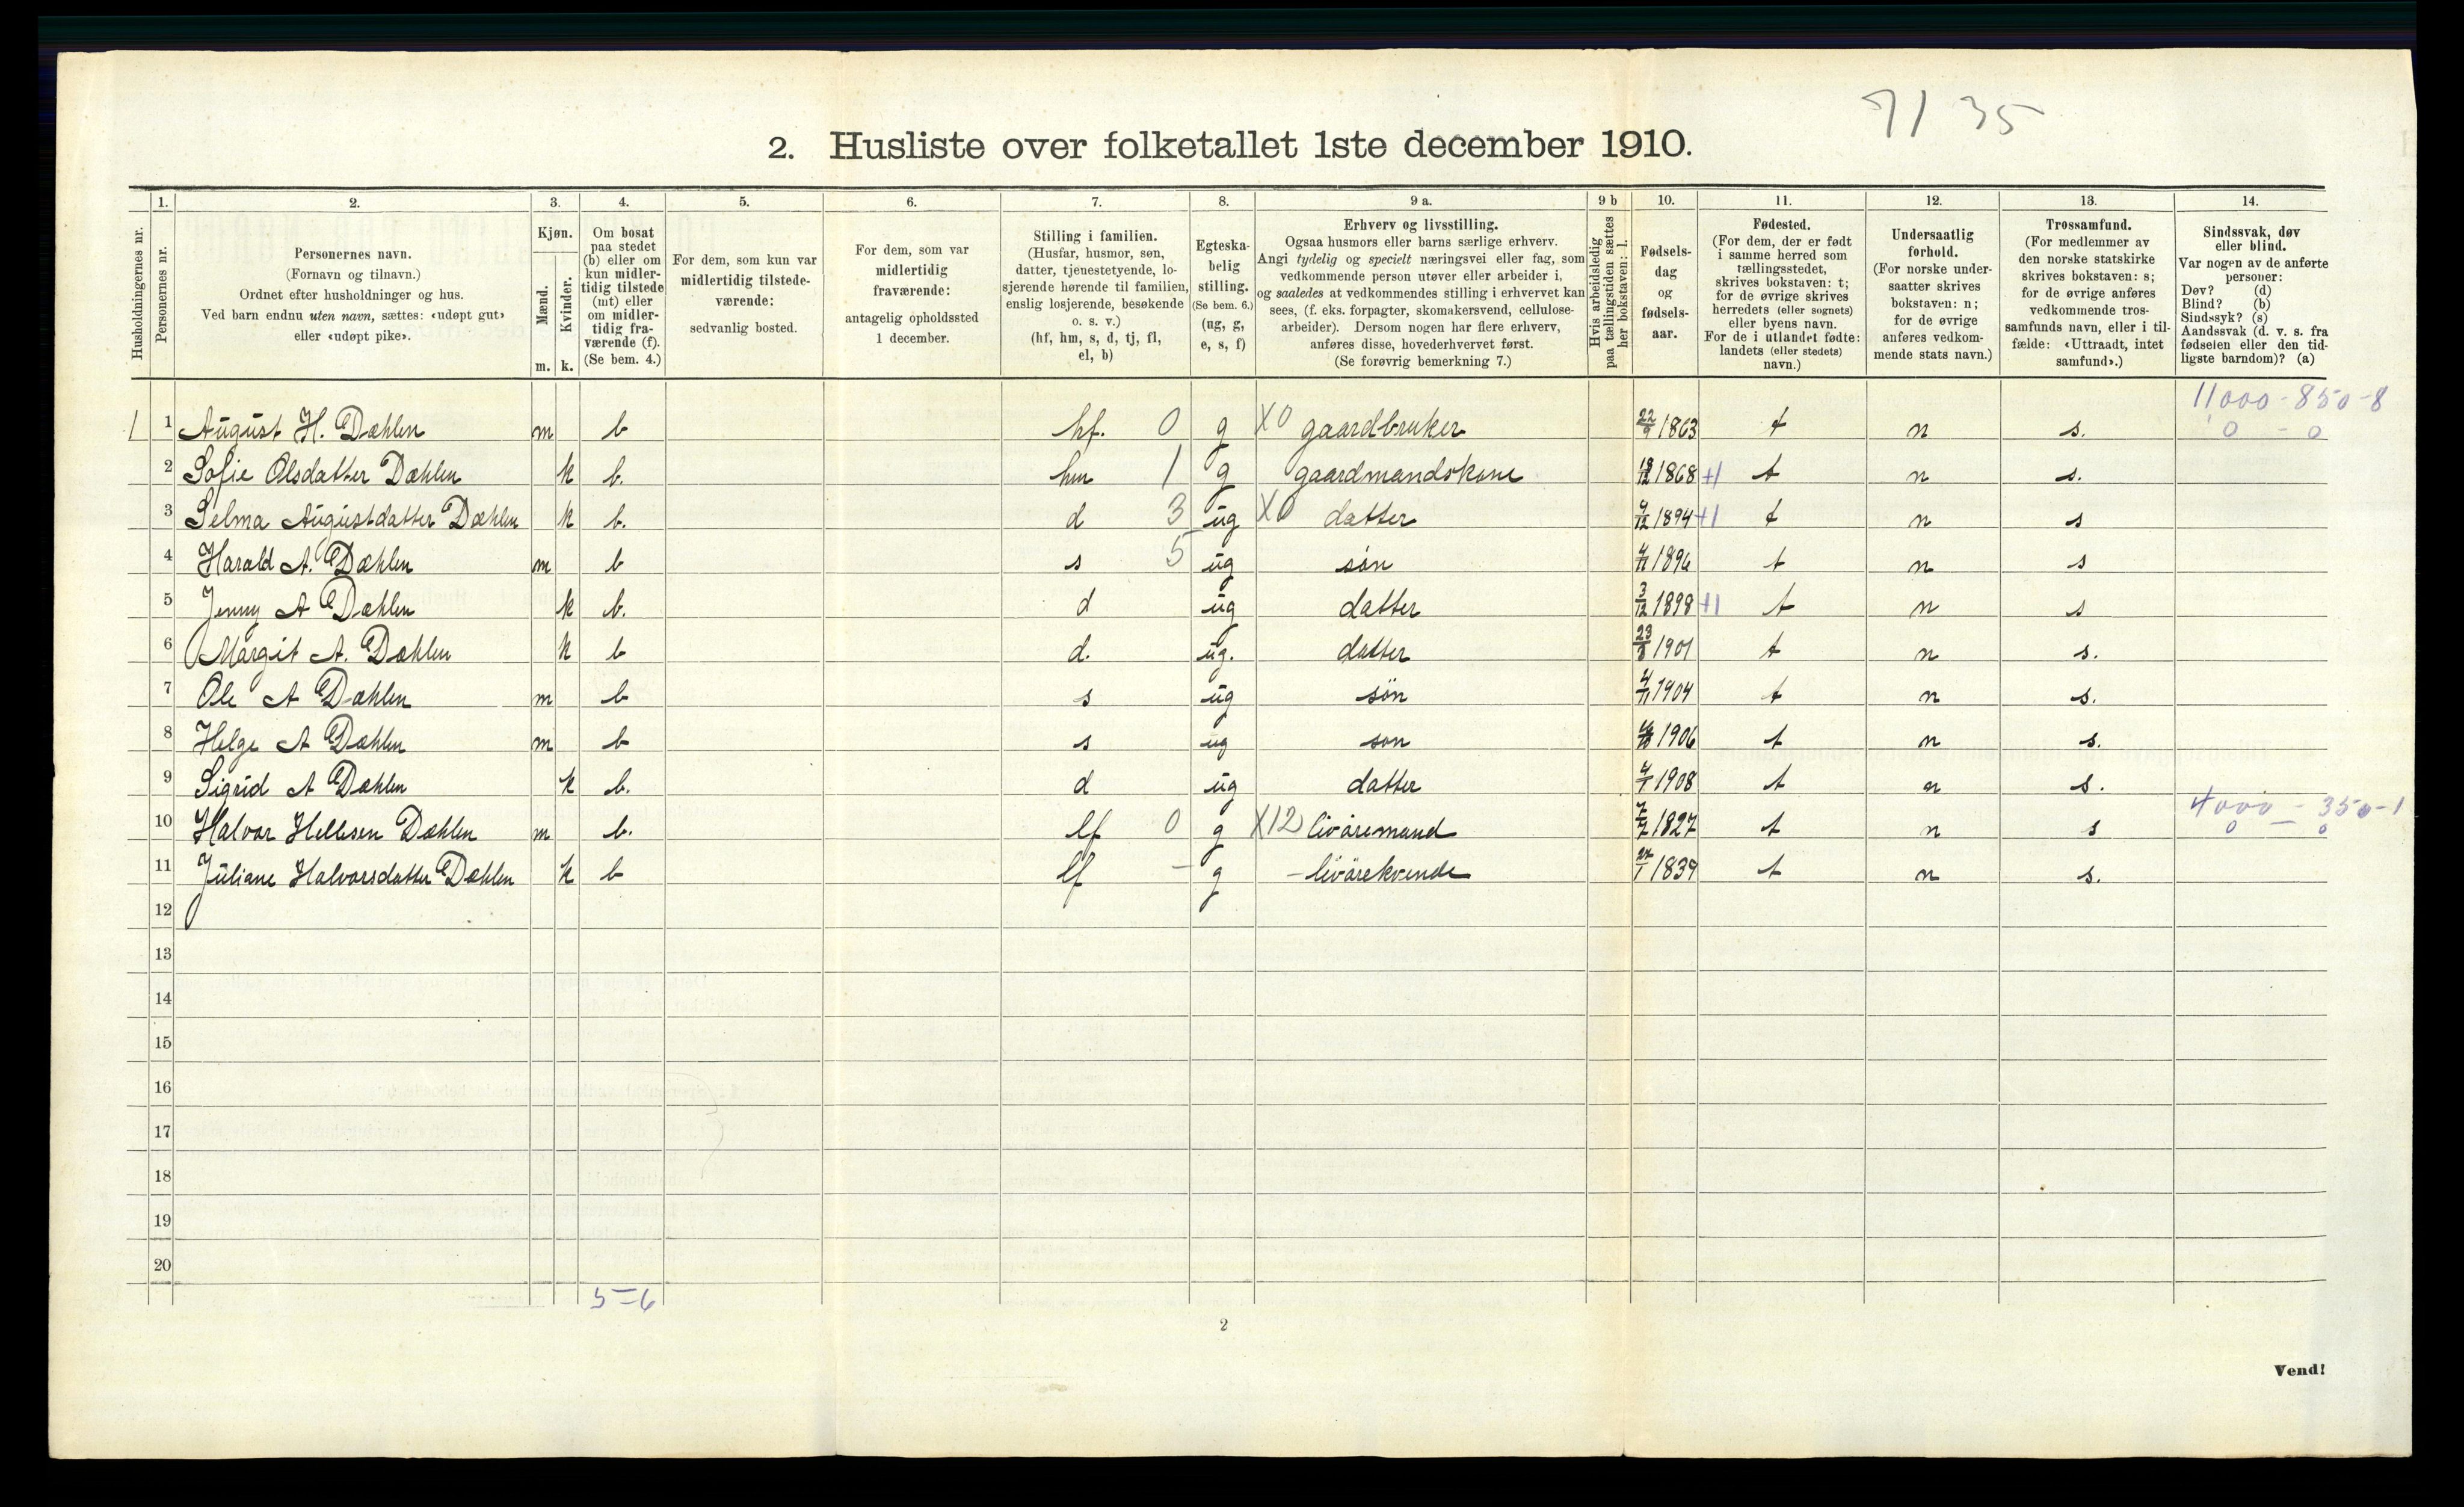 7135
2. Husliste over folketallet 1ste december 1910.
Husholdningernes nr.
1. Personernes nr.
2. Personernes navn. (Fornavn og tilnavn.) Ordnet efter husholdninger og hus. Ved barn endnu uten navn, sættes: «udøpt gut» eller «udøpt pike».
3. Kjøn. Mænd. m. Kvinder. k.
4. Om bosat paa stedet (b) eller om kun midlertidig tilstede (mt) eller om midlertidig fraværende (f). (Se bem. 4.)
5. For dem, som kun var midlertidig tilstedeværende: sedvanlig bosted.
6. For dem, som var midlertidig fraværende: antagelig opholdssted 1 december.
7. Stilling i familien. (Husfar, husmor, søn, datter, tjenestetyende, losjerende hørende til familien, enslig losjerende, besøkende o. s. v.) (hf, hm, s, d, tj, fl, el, b)
8. Egteskabelig stilling. (Se bem. 6.) (ug, g, e, s, f)
9 a. Erhverv og livsstilling. Ogsaa husmors eller barns særlige erhverv. Angi tydelig og specielt næringsvei eller fag, som vedkommende person utøver eller arbeider i, og saaledes at vedkommendes stilling i erhvervet kan sees, (f. eks. forpagter, skomakersvend, cellulosearbeider). Dersom nogen har flere erhverv, anføres disse, hovederhvervet først. (Se forøvrig bemerkning 7.)
9 b Hvis arbeidsledig paa tællingstiden sættes her bokstaven: l.
10. Fødselsdag og fødselsaar.
11. Fødested. (For dem, der er født i samme herred som tællingsstedet, skrives bokstaven: t; for de øvrige skrives herredets (eller sognets) eller byens navn. For de i utlandet fødte: landets (eller stedets) navn.)
12. Undersaatlig forhold. (For norske undersaatter skrives bokstaven: n; for de øvrige anføres vedkommende stats navn.)
13. Trossamfund. (For medlemmer av den norske statskirke skrives bokstaven: s; for de øvrige anføres vedkommende trossamfunds navn, eller i tilfælde: «Uttraadt, intet samfund».)
14. Sindssvak, døv eller blind. Var nogen av de anførte personer: Døv? (d) Blind? (b) Sindssyk? (s) Aandssvak (d. v. s. fra fødselen eller den tidligste barndom)? (a)
11000-850-8
1 1 August H. Dæhlen m b hf. 0 g X0 gaardbruker 22/9 1863 t n s. 0 - 0
2 Sofie Olsdatter Dæhlen k b. hm 1 g gaardmandskone 1868 +1 t n s.
3 Selma Augustdatter Dæhlen k b. d 3 ug X0 datter 1894 +1 t n s
4 Harald A. Dæhlen m b s 5 ug søn 1896 t n s
5 Jenny A Dæhlen k b. d ug datter 3/12 1898 +1 t n s
6 Margit A. Dæhlen k b d. ug. datter 23/8 1901 t n s.
7 Ole A Dæhlen m b s ug søn 4/11 1904 t n s.
8 Helge A Dæhlen m b s ug søn 1906 t n s.
9 Sigrid A Dæhlen k b. d ug datter 4/1 1908 t n s.
4000 - 350-1
10 Halvor Hellesen Dæhlen m b. lf 0 g X12 livøremand 7/7 1827 t n s 0 - 0
11 Juliane Halvorsdatter Dæhlen k b lf - g - livørekvende 1839 t n s.
12
13
14
15
16
17
18
19
20
5-6
2
Vend!